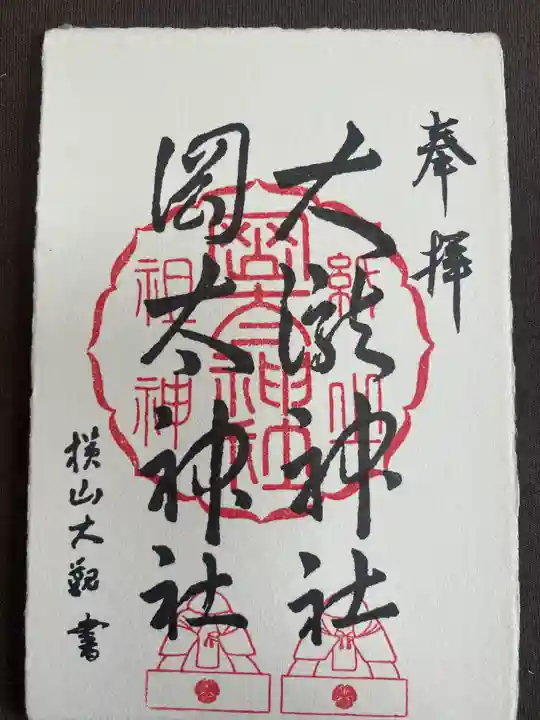 奉拝
大瀧神社
岡太神社
横山大観 書
紙
祖神